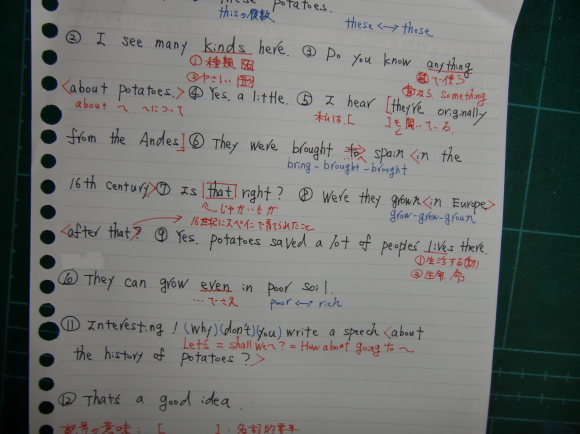 these potatoes.
thisの複数
these ⟷ those
② I see many kinds here. ③ Do you know anything
①種類 ②やさしい
で使う
なら something
<about potatoes.> ④ Yes, a little. ⑤ I hear [they're originally
about ~ ~について
私は、[ ]を聞いている。
from the Andes] ⑥ They were brought to spain <in the
bring - brought - brought
16th century> ⑦ Is that right? ⑧ Were they grown <in Europe>
じゃがいもが
16世紀にスペインで育てられたこと
grow-grew-groun
<after that? ⑨ Yes. potatoes saved a lot of people's lives there.
①生活する(動)
②生命
⑩ They can grow even in poor soil.
…でさえ
poor ⟷ rich
⑪ Interesting! (why)(don't)(you) write a speech <about
Let's = shall we~? = How about going to ~
the history of potatoes?>
⑫ That's a good idea.
記号の意味: [ ]: 名詞的要素